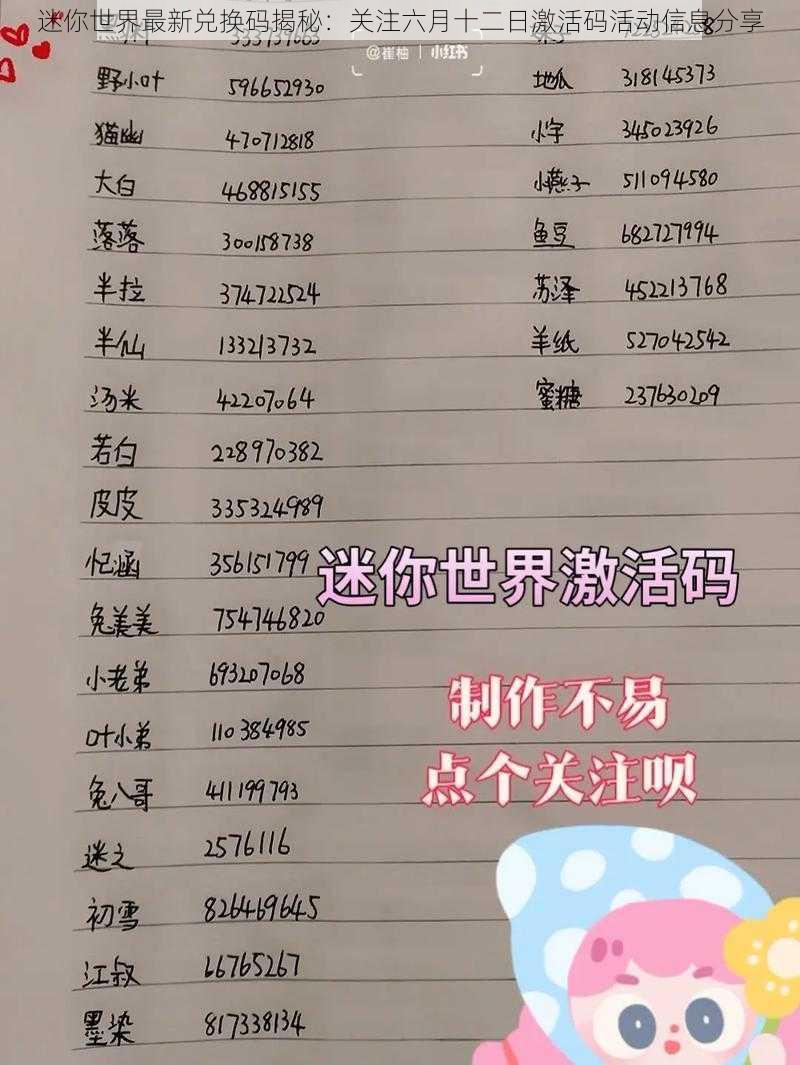 迷你世界最新兑换码揭秘：关注六月十二日激活码活动信息分享
@崔柚 | 小红书
野小叶 596652930
猫幽 470712818
大白 468815155
落落 300158738
半拉 374722524
半仙 133213732
汤米 42207064
若白 228970382
皮皮 335324989
忆涵 356151799
兔美美 754746820
小老弟 693207068
叶小弟 110384985
兔八哥 411199793
迷之 2576116
初雪 826469645
江叔 66765267
墨染 817338134
地瓜 318145373
小字 345023926
小燕子 511094580
鱼豆 682727994
苏泽 452213768
羊纸 527042542
蜜糖 237630209
迷你世界激活码
制作不易
点个关注呗